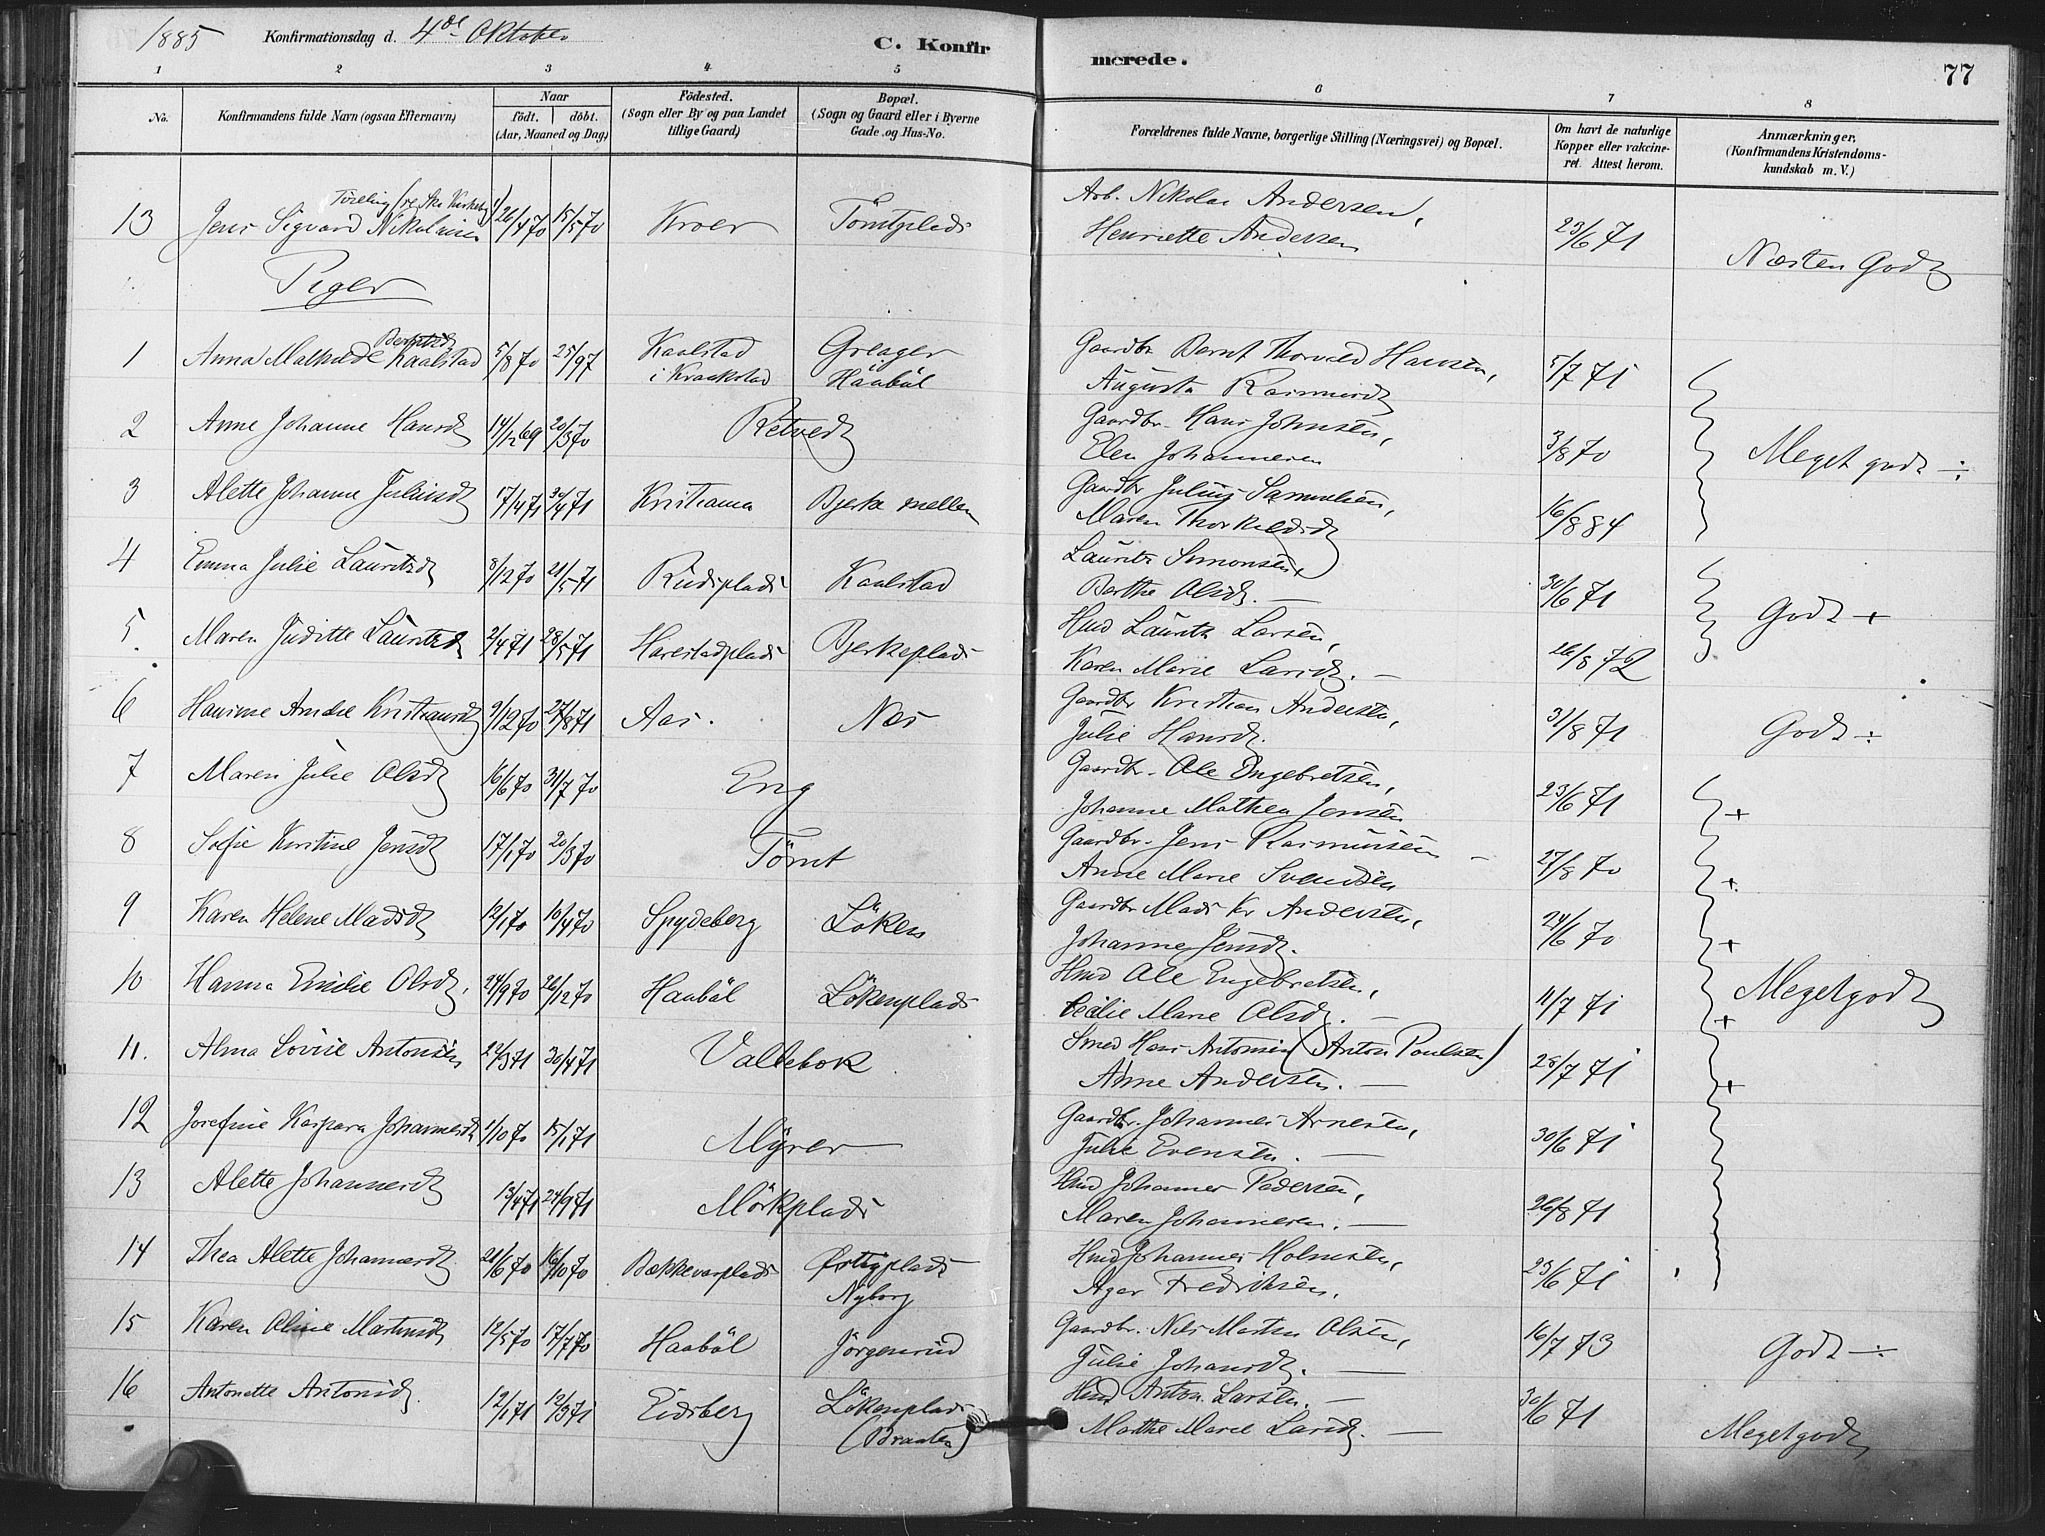 1885 Konfirmationsdag d. 4de Oktober
C. Konfirmerede. 77
1 2 3 4 5 6 7 8
No. Konfirmandens fulde Navn (ogsaa Efternavn) Naar født. døbt. (Aar, Maaned og Dag) Fødested. (Sogn eller By og paa Landet tillige Gaard) Bopæl. (Sogn og Gaard eller i Byerne Gade og Hus-No. Forældrenes fulde Navne, borgerlige Stilling (Næringsvei) og Bopæl. Om havt de naturlige Kopper eller vakcineret. Attest herom. Anmærkninger, (Konfirmandens Kristendomskundskab m. V.)
Tvilling
13 Jens Sigvard Nikolaisen 26/4 70 15/5 70 Kroer Tømtplads Arb. Nikolai Andersen, 23/6 71 Næsten Godt
Henriette Andersen
Piger
Berntsd
1 Anna Mathilde Kaalstad 5/8 70 25/9 7 Kaalstad Greager Gaardbr Bernt Thorvald Hansen, 5/7 71
i Kraakstad Haabøl Augusta Rasmusd
2 Anne Johanne Hansd 14/12 69 20/3 70 Retvedt Gaardbr. Hans Johnsen, 3/8 70 Meget godt ÷
Elen Johannesen
3 Alette Johanne Juliusd 17/4 71 30/4 71 Kristiania Bjerke mellem Gaardbr Julius Samuelsen, 16/8 84
Maren Thorkildsd
4 Emma Julie Lauritsd 8/12 70 21/5 71 Rudsplads Kaalstad Laurits Simonsen, 30/6 71 Godt +
Berthe Olsd. —
5 Maren Juditte Lauritsd 2/4 71 28/5 71 Harestadplads Bjerkeplads Hmd Laurits Larsen, 26/8 72
Karen Marie Larsd. —
6 Hansine Amalie Kristiansd 9/12 70 27/8 71 Aas. Næs Gaardbr Kristian Andersen, 31/8 71 Godt ÷
Julie Hansd.
7 Maren Julie Olsd 16/6 70 31/7 70 Eng Gaardbr. Ole Engebretsen, 23/6 71 +
Johanne Mathea Jensen
8 Sofie Kirstine Jensd 17/1 70 20/3 70 Tømt Gaardbr. Jens Rasmussen — 27/8 70 +
Anne Marie Svendsen
9 Karen Helene Madsd 12/1 70 10/4 70 Spydeberg Løken Gaardbr Mads Kr Andersen, 24/6 70 +
Johanne Jensd.
10 Hanna Emilie Olsd. 24/9 70 26/12 70 Haabøl Løkenplads Hmd Ole Engebretsen, 11/7 71 + Meget godt
Cecilie Marie Olsd. —
11. Alma Lovise Antonsen 29/3 71 30/4 71 Vallebok Smed Hans Antonsen (Anton Poulsen) 28/7 71 +
Anne Andersen. —
12 Josefine Kaspara Johannesd 1/10 70 15/1 71 Myrer Gaardbr. Johannes Arnesen, 30/6 71
Julie Evensen. —
13 Alette Johannesd 13/4 71 24/9 71 Mörkplads Hmd Johannes Pedersen, 26/8 71
Maren Johannesen. —
14 Thea Alette Johannesd 21/6 70 16/10 70 Bækkevarplads Østbyplads Hmd Johannes Holmsen, 25/6 71
Nyborg Agar Fredriksen.
15 Karen Oline Martinsd 12/5 70 17/7 70 Haabøl Jørgensrud Gaardbr. Nils Martin Olsen, 16/7 73 Godt ÷
Julie Johansd. —
16 Antonette Antonsd. 12/1 71 12/3 71 Eidsberg Løkenplads Hmd Anton Larsen. — 30/6 71 Meget godt
(Braaten) Marthe Marie Larsd. —